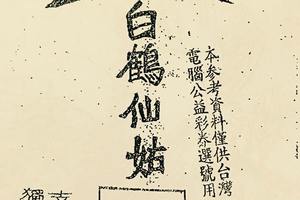 本参考資料僅供台灣
電腦公益彩券選號用
白鶴仙姑
獨